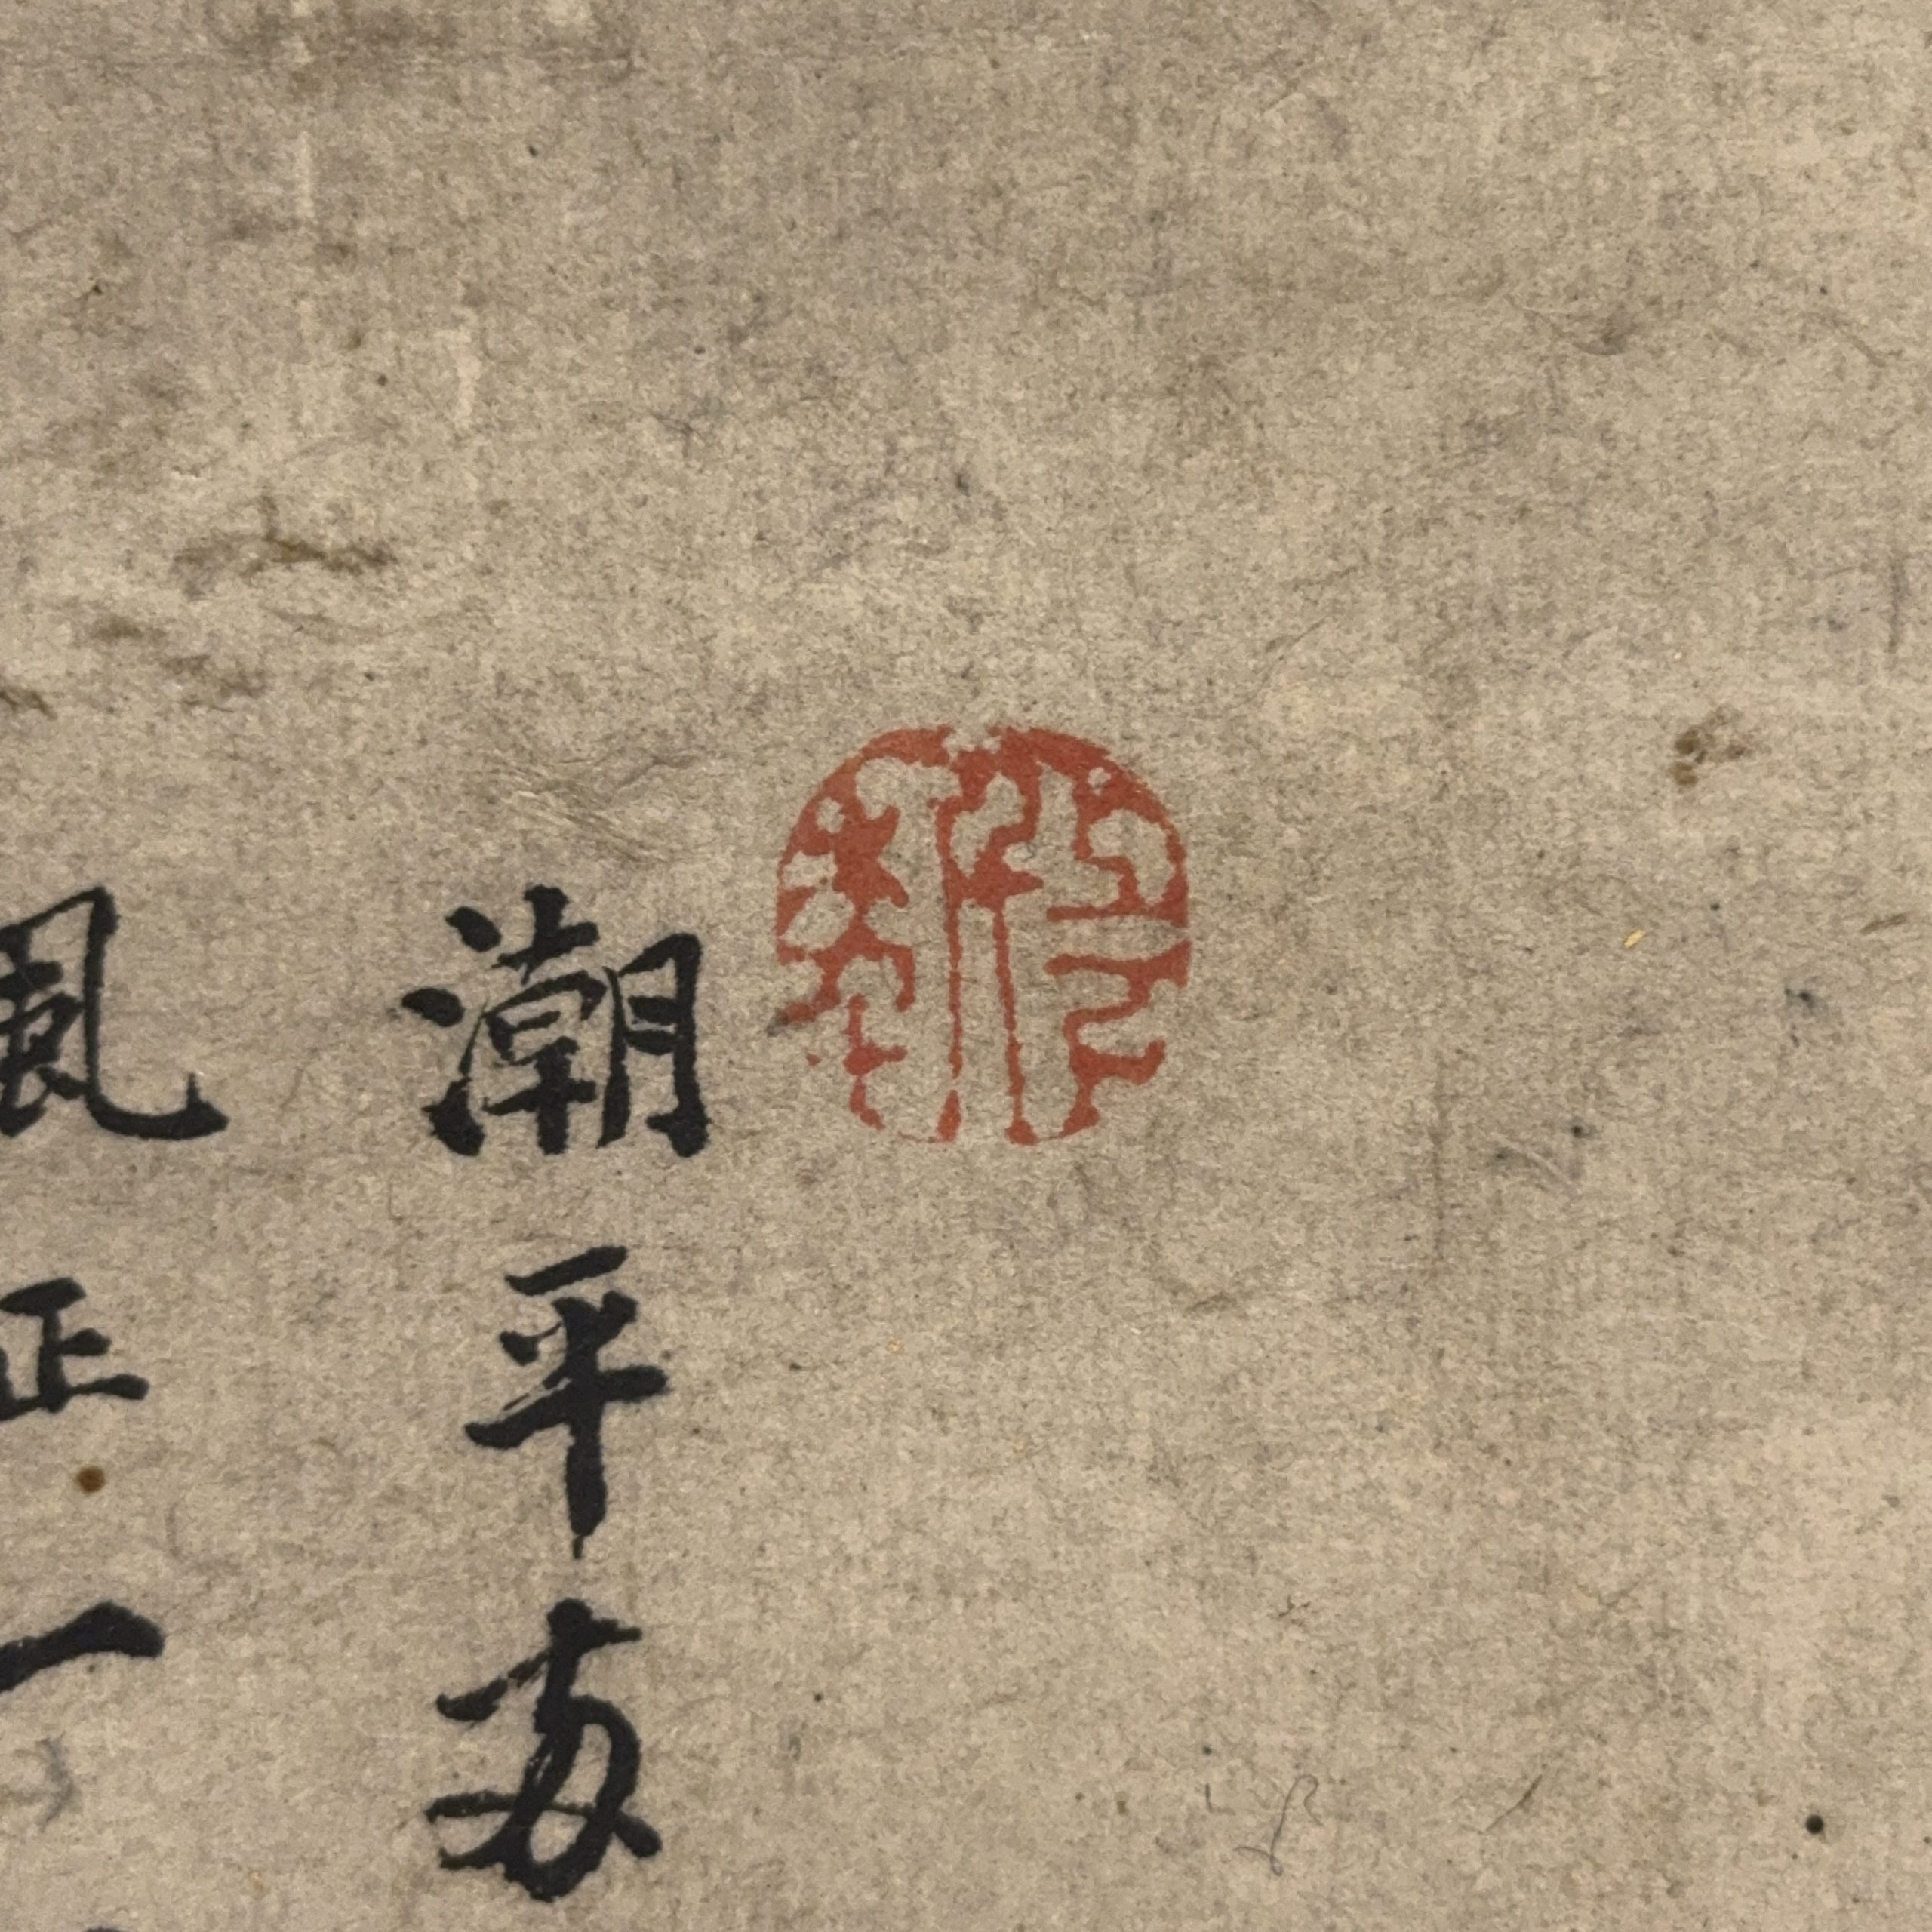 潮平兩
風正一